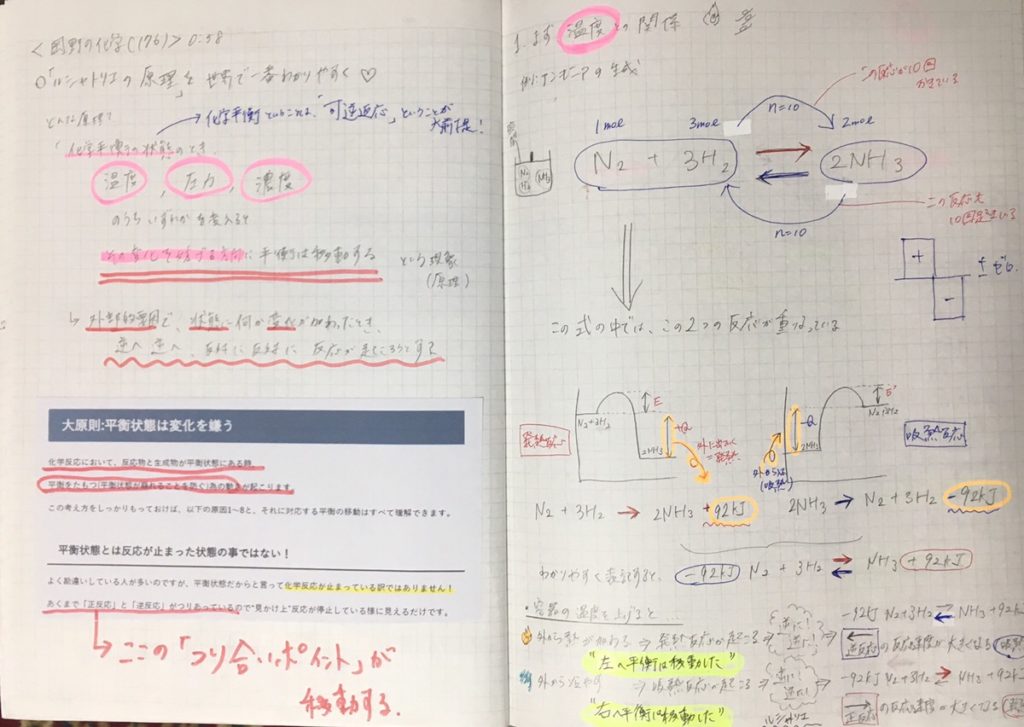 <岡野の化学(176)> 0:58
○「ルシャトリエの原理」を世界で一番わかりやすく♡
どんな原理?
→化学平衡ということは、「可逆反応」ということが
大前提!
「化学平衡の状態のとき、
温度 , 圧力 , 濃度
のうちいずれかを変えると
その変化を妨げる方向に平衡は移動する
という現象
(原理)
↳ 外部的要因で、状態に何か変化が加わったとき、
逆へ逆へ、反対に反対に 反応が起ころうとする
大原則:平衡状態は変化を嫌う
化学反応において、反応物と生成物が平衡状態にある時、
平衡をたもつ(平衡状態が崩れることを防ぐ)為の動きが起こります。
この考え方をしっかりもっておけば、以下の原因1~8と、それに対応する平衡の移動はすべて理解できます。
平衡状態とは反応が止まった状態の事ではない!
よく勘違いしている人が多いのですが、平衡状態だからと言って化学反応が止まっている訳ではありません!
あくまで「正反応」と「逆反応」がつりあっているので"見かけ上"反応が停止している様に見えるだけです。
↳ ここの「つり合いポイント」が
移動する.
1. まず 温度 との関係
例:アンモニアの生成
この反応が10回
おきている
n=10
1mol 3mol 2mol
N2 + 3H2 ⇄ 2NH3
N2 H2 NH3
n=10
この反応も
10回起きている
+
-
± ゼロ
この式の中では、この2つの反応が重なっている
発熱反応
N2+3H2
E
+Q
2NH3
外に出ていく
=発熱
-Q
2NH3
E'
N2+3H2
外から
(吸熱)
吸熱反応
N2 + 3H2 → 2NH3 +92kJ
2NH3 → N2 + 3H2 -92kJ
わかりやすく表記すると、
-92kJ N2 + 3H2 ⇄ NH3 +92kJ
・容器の温度を上げると…
外から熱が加わる ⇒
逆に!
逆に!
-92kJ N2+3H2 ⇄ NH3+92k
"左へ平衡は移動した"
← 逆反応 の反応速度が大きくなる
外から冷やす ⇒ 吸熱反応が起こる ⇒
逆に!
逆に!
-92kJ N2+3H2 ⇄ NH3+92k
"右へ平衡は移動した"
→ 正反応 の反応速度が大きくなる
ルシャトリエ